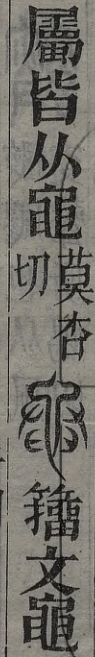 屬皆从黽莫杏切籒文黽